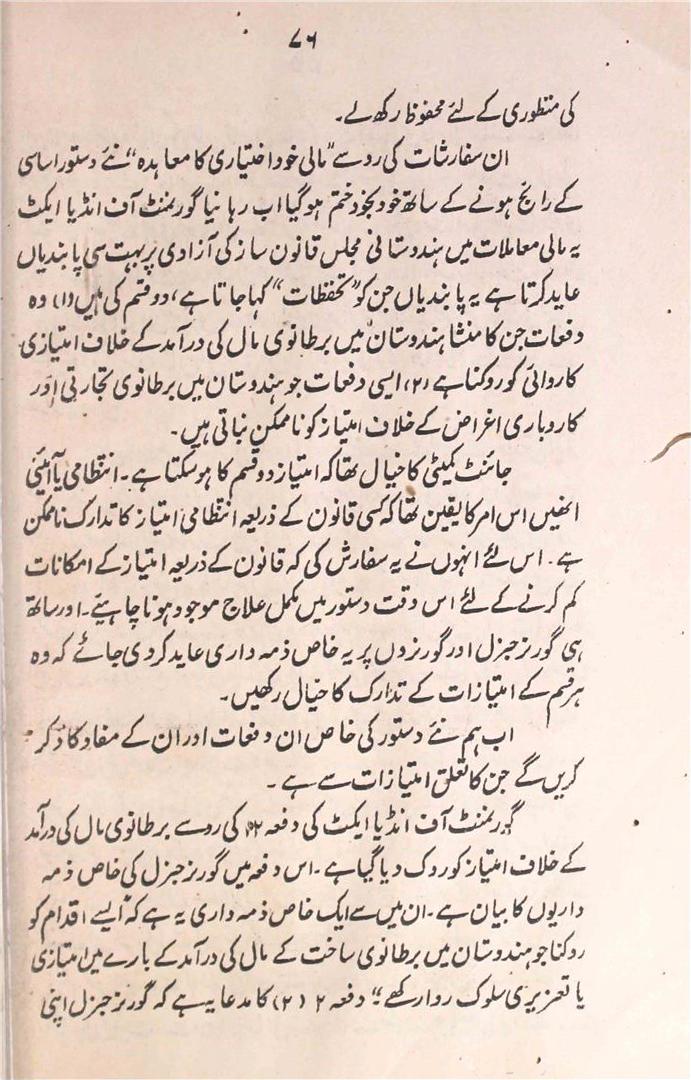 ۷۶
کی منظوری کے لئے محفوظ رکھ لے۔
ان سفارشات کی رو سے "مالی خود اختیاری کا معاہدہ" نئے دستور اساسی
کے رائج ہونے کے ساتھ خود بخود ختم ہوگیا اب رہا نیا گورنمنٹ آف انڈیا ایکٹ
یہ مالی معاملات میں ہندوستانی مجلس قانون ساز کی آزادی پر بہت سی پابندیاں
عاید کرتا ہے یہ پابندیاں جن کو "تحفظات" کہا جاتا ہے، دو قسم کی ہیں (۱) وہ
دفعات جن کا منشا ہندوستان میں برطانوی مال کی درآمد کے خلاف امتیازی
کاروائی کو روکنا ہے (۲) ایسی دفعات جو ہندوستان میں برطانوی تجارتی اور
کاروباری اغراض کے خلاف امتیاز کو ناممکن بناتی ہیں۔
جائنٹ کمیٹی کا خیال تھا کہ امتیاز دو قسم کا ہوسکتا ہے۔ انتظامی یا آئینی
انھیں اس امر کا یقین تھا کہ کسی قانون کے ذریعہ انتظامی امتیاز کا تدارک ناممکن
ہے۔ اس لئے انہوں نے یہ سفارش کی کہ قانون کے ذریعہ امتیاز کے امکانات
کم کرنے کے لئے اس وقت دستور میں مکمل علاج موجود ہونا چاہیئے۔ اور ساتھ
ہی گورنر جنرل اور گورنروں پر یہ خاص ذمہ داری عاید کردی جائے کہ وہ
ہر قسم کے امتیازات کے تدارک کا خیال رکھیں۔
اب ہم نئے دستور کی خاص ان دفعات اور ان کے مفاد کا ذکر
کریں گے جن کا تعلق امتیازات سے ہے۔
گورنمنٹ آف انڈیا ایکٹ کی دفعہ ۱۲ کی رو سے برطانوی مال کی درآمد
کے خلاف امتیاز کو روک دیا گیا ہے۔ اس دفعہ میں گورنر جنرل کی خاص ذمہ
داریوں کا بیان ہے۔ ان میں سے ایک خاص ذمہ داری یہ ہے کہ "ایسے اقدام کو
روکنا جو ہندوستان میں برطانوی ساخت کے مال کی درآمد کے بارے میں امتیازی
یا تعزیری سلوک روا رکھے" دفعہ ۲ (۲) کا مدعا یہ ہے کہ گورنر جنرل اپنی